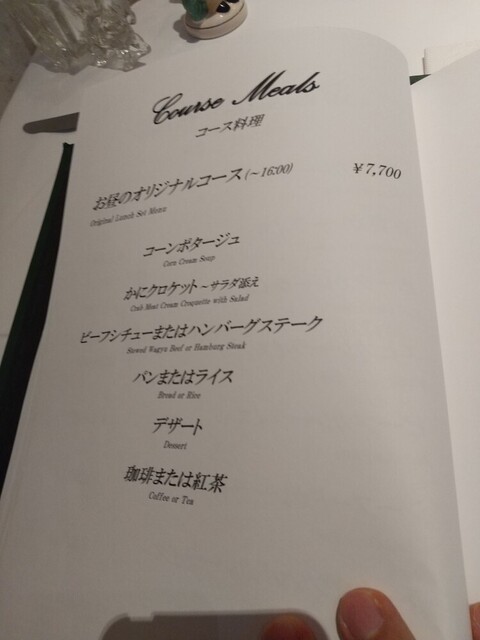 Course Meals
コース料理
お昼のオリジナルコース(~16:00) ¥7,700
Original Lunch Set Menu
コーンポタージュ
Corn Cream Soup
かにクロケット~サラダ添え
Crab Meat Cream Croquette with Salad
ビーフシチューまたはハンバーグステーク
Stewed Wagyu Beef or Hamburg Steak
パンまたはライス
Bread or Rice
デザート
Dessert
珈琲または紅茶
Coffee or Tea